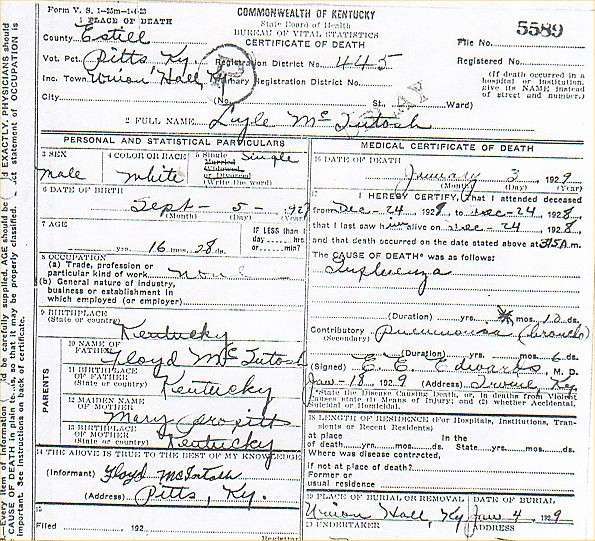 Form V. S. 1-25m-1-4-23
COMMONWEALTH OF KENTUCKY
State Board of Health
BUREAU OF VITAL STATISTICS
CERTIFICATE OF DEATH
1 PLACE OF DEATH
County Estill
File No. 5589
Vot. Pct. Pitts Ky. Registration District No. 445
Registered No.
Inc. Town Union Hall, Ky Primary Registration District No.
(If death occurred in a hospital or institution, give its NAME instead of street and number.)
City (No. St., Ward)
2 FULL NAME Lyle Mc Intosh
PERSONAL AND STATISTICAL PARTICULARS
3 SEX Male
4 COLOR OR RACE White
5 Single Married Widowed or Divorced (Write the word) Single
6 DATE OF BIRTH
Sept - 5 - 192
(Month) (Day) (Year)
7 AGE
yrs. 16 mos. 28 ds.
IF LESS than 1 day hrs. or min.
8 OCCUPATION
(a) Trade, profession or particular kind of work none
(b) General nature of industry, business or establishment in which employed (or employer)
9 BIRTHPLACE
(State or country) Kentucky
PARENTS
10 NAME OF FATHER Floyd McIntosh
11 BIRTHPLACE OF FATHER (State or country) Kentucky
12 MAIDEN NAME OF MOTHER Mary
13 BIRTHPLACE OF MOTHER (State or country) Kentucky
14 THE ABOVE IS TRUE TO THE BEST OF MY KNOWLEDGE
(Informant) Floyd McIntosh
(Address) Pitts, Ky.
15
Filed 192
Registrar
MEDICAL CERTIFICATE OF DEATH
16 DATE OF DEATH
January 3 1929
(Month) (Day) (Year)
17 I HEREBY CERTIFY, that I attended deceased
from Dec-24 1928, to Dec-24 1928,
that I last saw him alive on Dec-24 1928,
and that death occurred on the date stated above at m.
The CAUSE OF DEATH* was as follows:
Influenza
(Duration) yrs. mos. ds.
Contributory Pneumonia (Broncho)
(Secondary)
(Duration) yrs. mos. 6 ds.
(Signed) E. E. Edwards, M. D.
Jan-18, 1929 (Address) Irvine, Ky.
*State the Disease Causing Death, or, in deaths from Violent Causes state (1) Means of Injury; and (2) whether Accidental, Suicidal or Homicidal.
18 LENGTH OF RESIDENCE (For Hospitals, Institutions, Transients or Recent Residents)
at place of death yrs. mos. ds. In the State yrs. mos. ds.
Where was disease contracted,
If not at place of death?
Former or usual residence
19 PLACE OF BURIAL OR REMOVAL DATE OF BURIAL
Union Hall, Ky Jan. 4 1929
UNDERTAKER ADDRESS